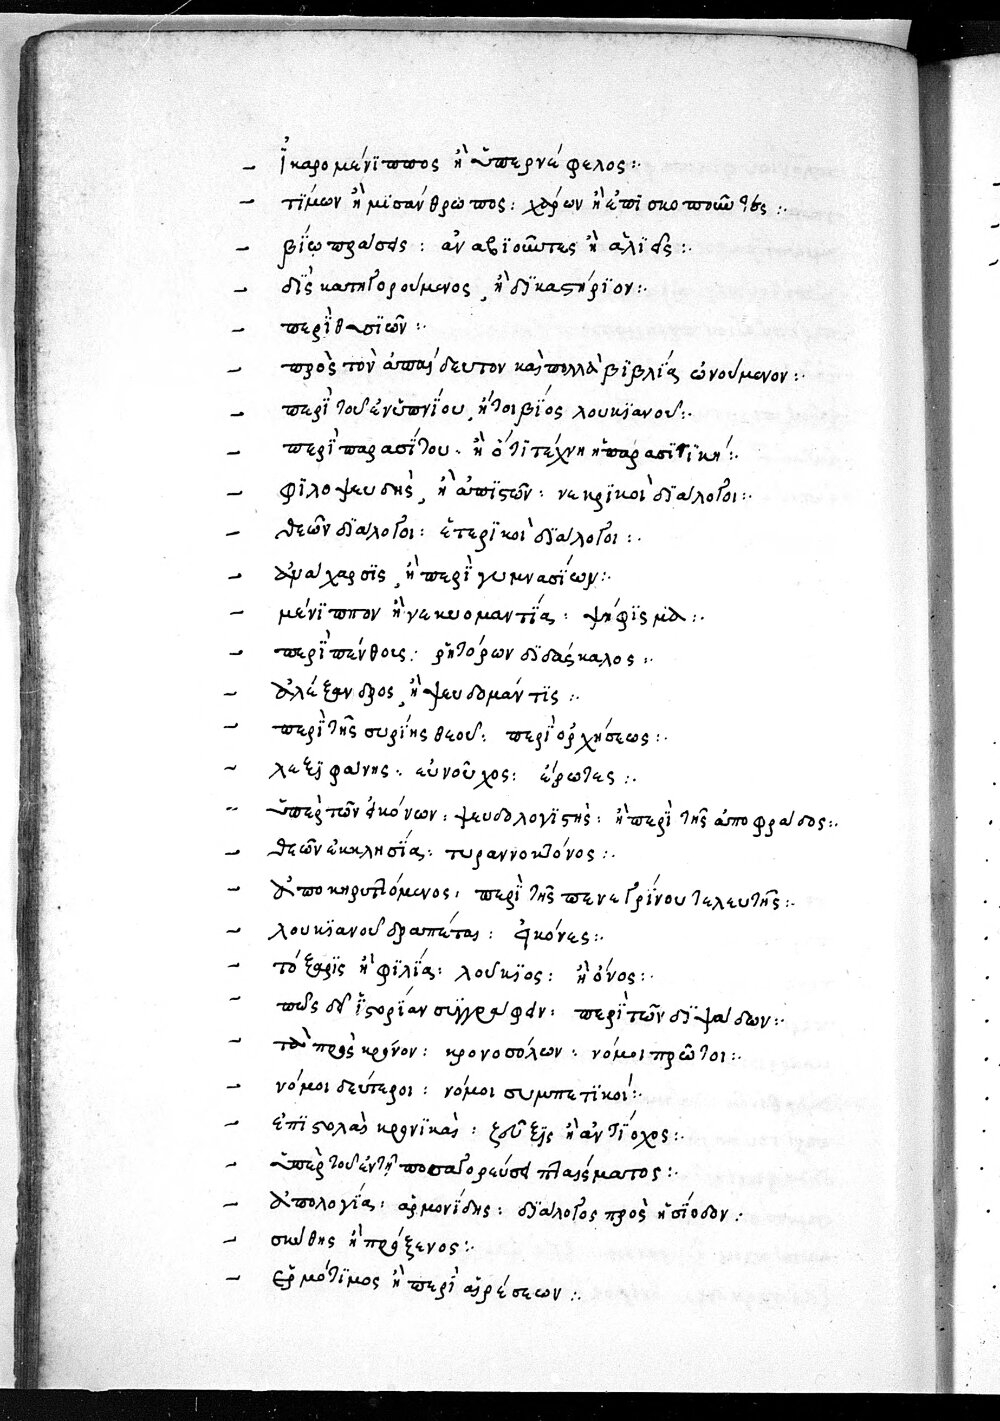 – Ἰκαρομένϊππος ἢ ὑπερνέφελος :·
– τίμων ἢ μϊσάνθρωπος : χάρων ἢ ἐπϊσκοποῦντες :·
– βίων πρᾶσις : ἀναβϊοῦντες ἢ ἁλιεῖς :·
– δὶς κατηγορούμενος, ἢ δϊκαστήρϊον :·
– περὶ θυσϊῶν :·
– πρὸς τὸν ἀπαίδευτον καὶ πολλὰ βϊβλία ὠνούμενον :·
– περὶ τοῦ ἐνυπνίου, ἤτοι βίος λουκϊανοῦ :·
– περὶ παρασίτου · ἢ ὅτι τέχνη ἡ παρασϊτϊκή :·
– φϊλοψευδὴς, ἢ ἀπϊστῶν : νεκρϊκοὶ δϊάλογοι :·
– θεῶν δϊάλογοι : ἑταιρϊκοὶ δϊάλογοι :·
– ἀνάχαρσϊς, ἢ περὶ γυμνασίων :·
– μένϊππον ἢ νεκυομαντία : ψήφϊσμα :·
– περὶ πένθους : ῥητόρων δϊδάσκαλος :·
– ἀλέξανδρος, ἢ ψευδομάντϊς :·
– περὶ τῆς συρίης θεοῦ : περὶ ὀρχήσεως :·
– λεξϊφάνης · εὐνοῦχος : ἔρωτες :·
– ὑπὲρ τῶν εἰκόνων : ψευδολογϊστὴς : ἢ περὶ τῆς ἀποφράδος :·
– θεῶν ἐκκλησία : τυραννοκτόνος :·
– ἀποκηρυττόμενος : περὶ τῆς περεγρίνου τελευτῆς :·
– λουκϊανοῦ δραπέται : εἰκόνες :·
– τόξαρϊς ἢ φϊλία : λούκϊος : ἢ ὄνος :·
– πῶς δεῖ ἱστορίαν συγγράφειν : περὶ τῶν δϊψάδων :·
– τὰ πρὸς κρόνον : κρονοσόλων : νόμοι πρῶτοι :·
– νόμοι δεύτεροι : νόμοι συμποτϊκοί :·
– ἐπϊστολαὶ κρονϊκαὶ : ζεῦξϊς ἢ ἀντίοχος :·
– ὑπὲρ τοῦ ἐν τῇ προσαγορεύσει πταίσματος :·
– ἀπολογία : ἁρμονίδης : δϊάλογος πρὸς ἡσίοδον :
– σκύθης ἢ πρόξενος :·
– ἑρμότϊμος ἢ περὶ αἱρέσεων :·